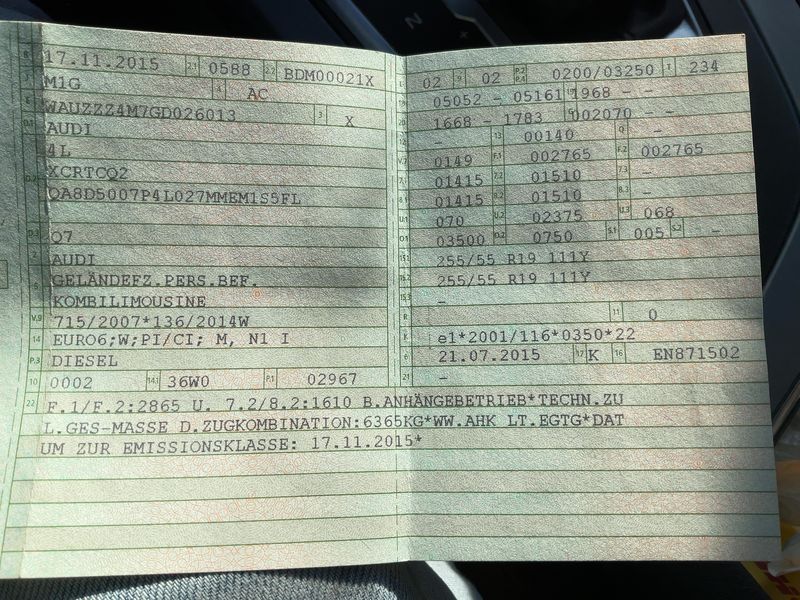 B 17.11.2015 2.1 0588 2.2 BDM00021X
J M1G 4 AC
E WAUZZZ4M7GD026013 3 X
D.1 AUDI
4L
D.2 XCRTCQ2
QA8D5007P4L027MMEM1S5FL
D.3 Q7
2 AUDI
5 GELÄNDEFZ.PERS.BEF.
KOMBILIMOUSINE
V.9 715/2007*136/2014W
14 EURO6;W;PI/CI; M, N1 I
P.3 DIESEL
10 0002 14.1 36W0 P.1 02967
22 F.1/F.2:2865 U. 7.2/8.2:1610 B.ANHÄNGEBETRIEB*TECHN.ZU
L.GES-MASSE D.ZUGKOMBINATION:6365KG*WW.AHK LT.EGTG*DAT
UM ZUR EMISSIONSKLASSE: 17.11.2015*
L 02 9 02 P.2 P.4 0200/03250 T 234
18 05052 - 05161 19 1968 - -
20 1668 - 1783 G 002070 - -
- 13 00140 Q -
V.7 0149 F.1 002765 F.2 002765
7.1 01415 7.2 01510 7.3 -
8.1 01415 8.2 01510 8.3 -
U.1 070 U.2 02375 U.3 068
O.1 03500 O.2 0750 S.1 005 S.2 -
15.1 255/55 R19 111Y
15.2 255/55 R19 111Y
15.3 -
R 11 0
K e1*2001/116*0350*22
6 21.07.2015 17 K 16 EN871502
21 -